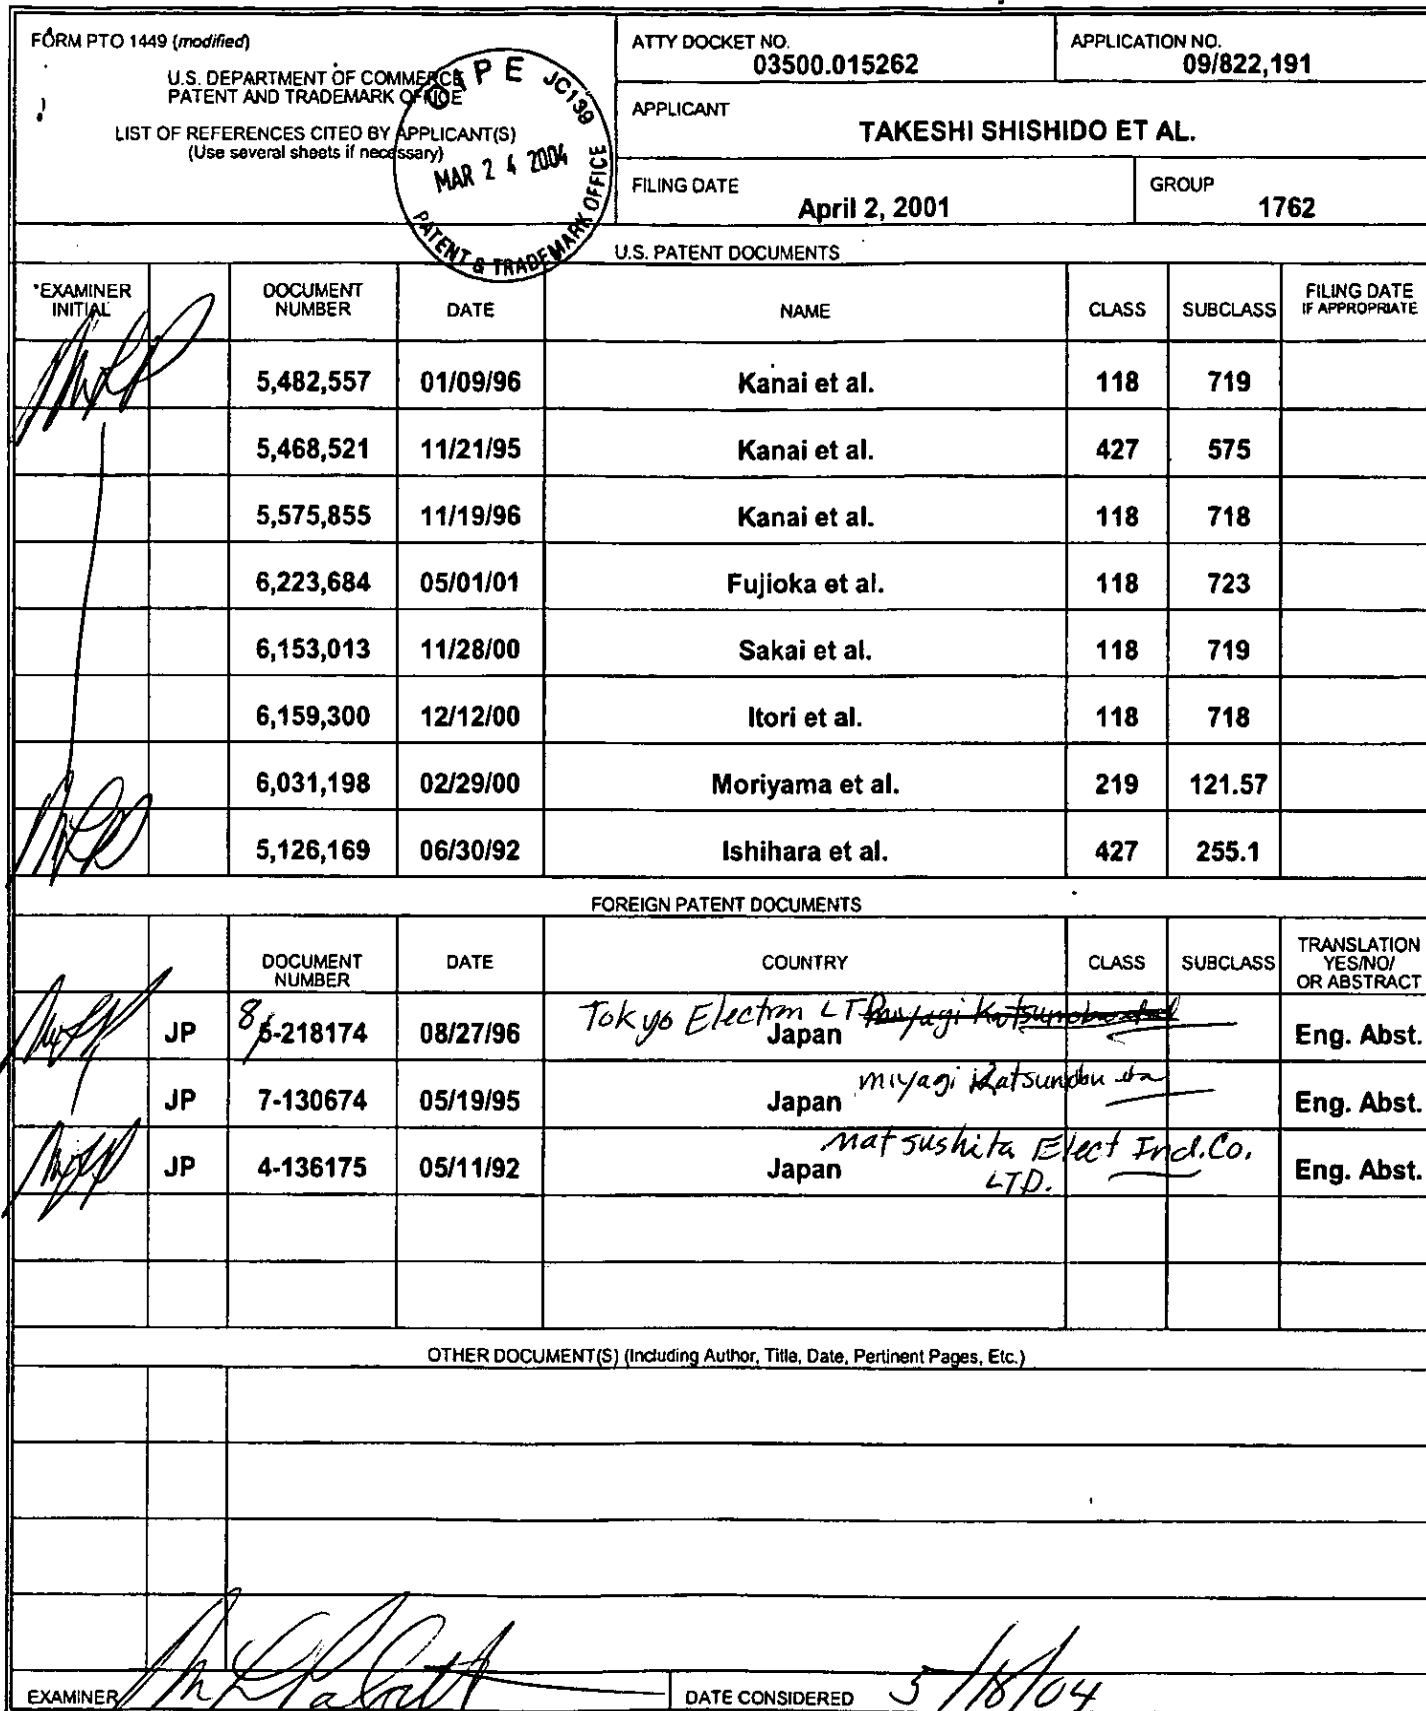 FORM PTO 1449 (modified)
U.S. DEPARTMENT OF COMMERCE
PATENT AND TRADEMARK OFFICE
LIST OF REFERENCES CITED BY APPLICANT(S)
(Use several sheets if necessary)
OIPE JC139
MAR 24 2004
PATENT & TRADEMARK OFFICE
ATTY DOCKET NO.
03500.015262
APPLICATION NO.
09/822,191
APPLICANT
TAKESHI SHISHIDO ET AL.
FILING DATE
April 2, 2001
GROUP
1762
U.S. PATENT DOCUMENTS
*EXAMINER INITIAL DOCUMENT NUMBER DATE NAME CLASS SUBCLASS FILING DATE IF APPROPRIATE
5,482,557 01/09/96 Kanai et al. 118 719
5,468,521 11/21/95 Kanai et al. 427 575
5,575,855 11/19/96 Kanai et al. 118 718
6,223,684 05/01/01 Fujioka et al. 118 723
6,153,013 11/28/00 Sakai et al. 118 719
6,159,300 12/12/00 Itori et al. 118 718
6,031,198 02/29/00 Moriyama et al. 219 121.57
5,126,169 06/30/92 Ishihara et al. 427 255.1
FOREIGN PATENT DOCUMENTS
DOCUMENT NUMBER DATE COUNTRY CLASS SUBCLASS TRANSLATION YES/NO/ OR ABSTRACT
Tokyo Electron LTD miyagi Katsunobu
JP 8 6-218174 08/27/96 Japan Eng. Abst.
miyagi Katsunobu
JP 7-130674 05/19/95 Japan Eng. Abst.
Matsushita Elect Ind. Co. LTD.
JP 4-136175 05/11/92 Japan Eng. Abst.
OTHER DOCUMENT(S) (Including Author, Title, Date, Pertinent Pages, Etc.)
EXAMINER
DATE CONSIDERED 5/18/04